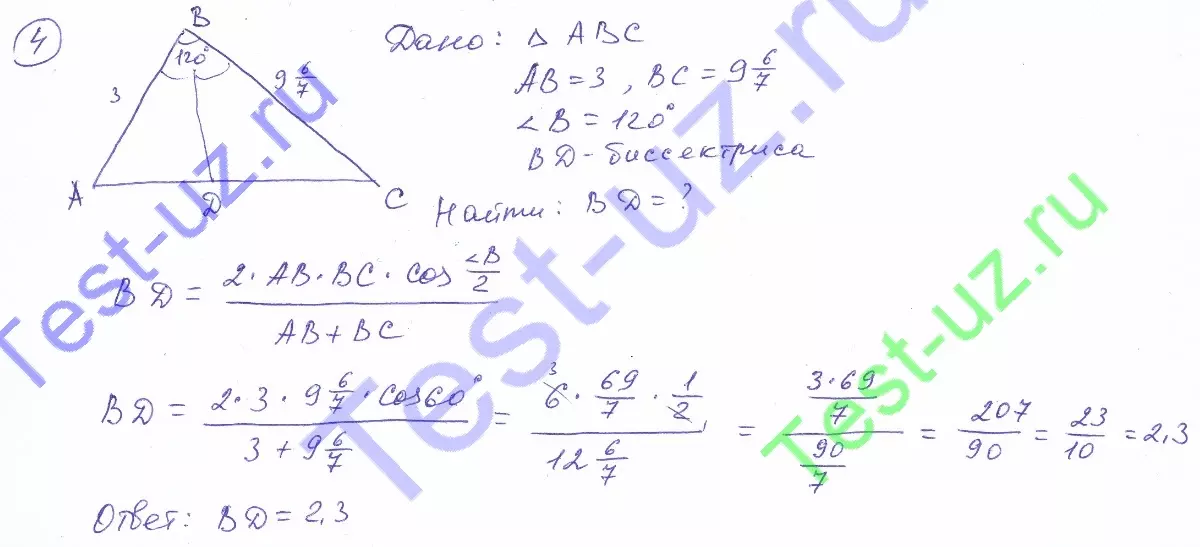 4
B
120°
3
9 6/7
A
D
C
Дано: △ ABC
AB = 3, BC = 9 6/7
∠B = 120°
BD - биссектриса
Найти: BD = ?
BD = (2 · AB · BC · cos ∠B/2) / (AB + BC)
BD = (2 · 3 · 9 6/7 · cos 60°) / (3 + 9 6/7) = (6 3 · 69/7 · 1/2) / (12 6/7) = (3 · 69/7) / (90/7) = 207/90 = 23/10 = 2,3
Ответ: BD = 2,3
Test-uz.ru
Test-uz.ru
Test-uz.ru